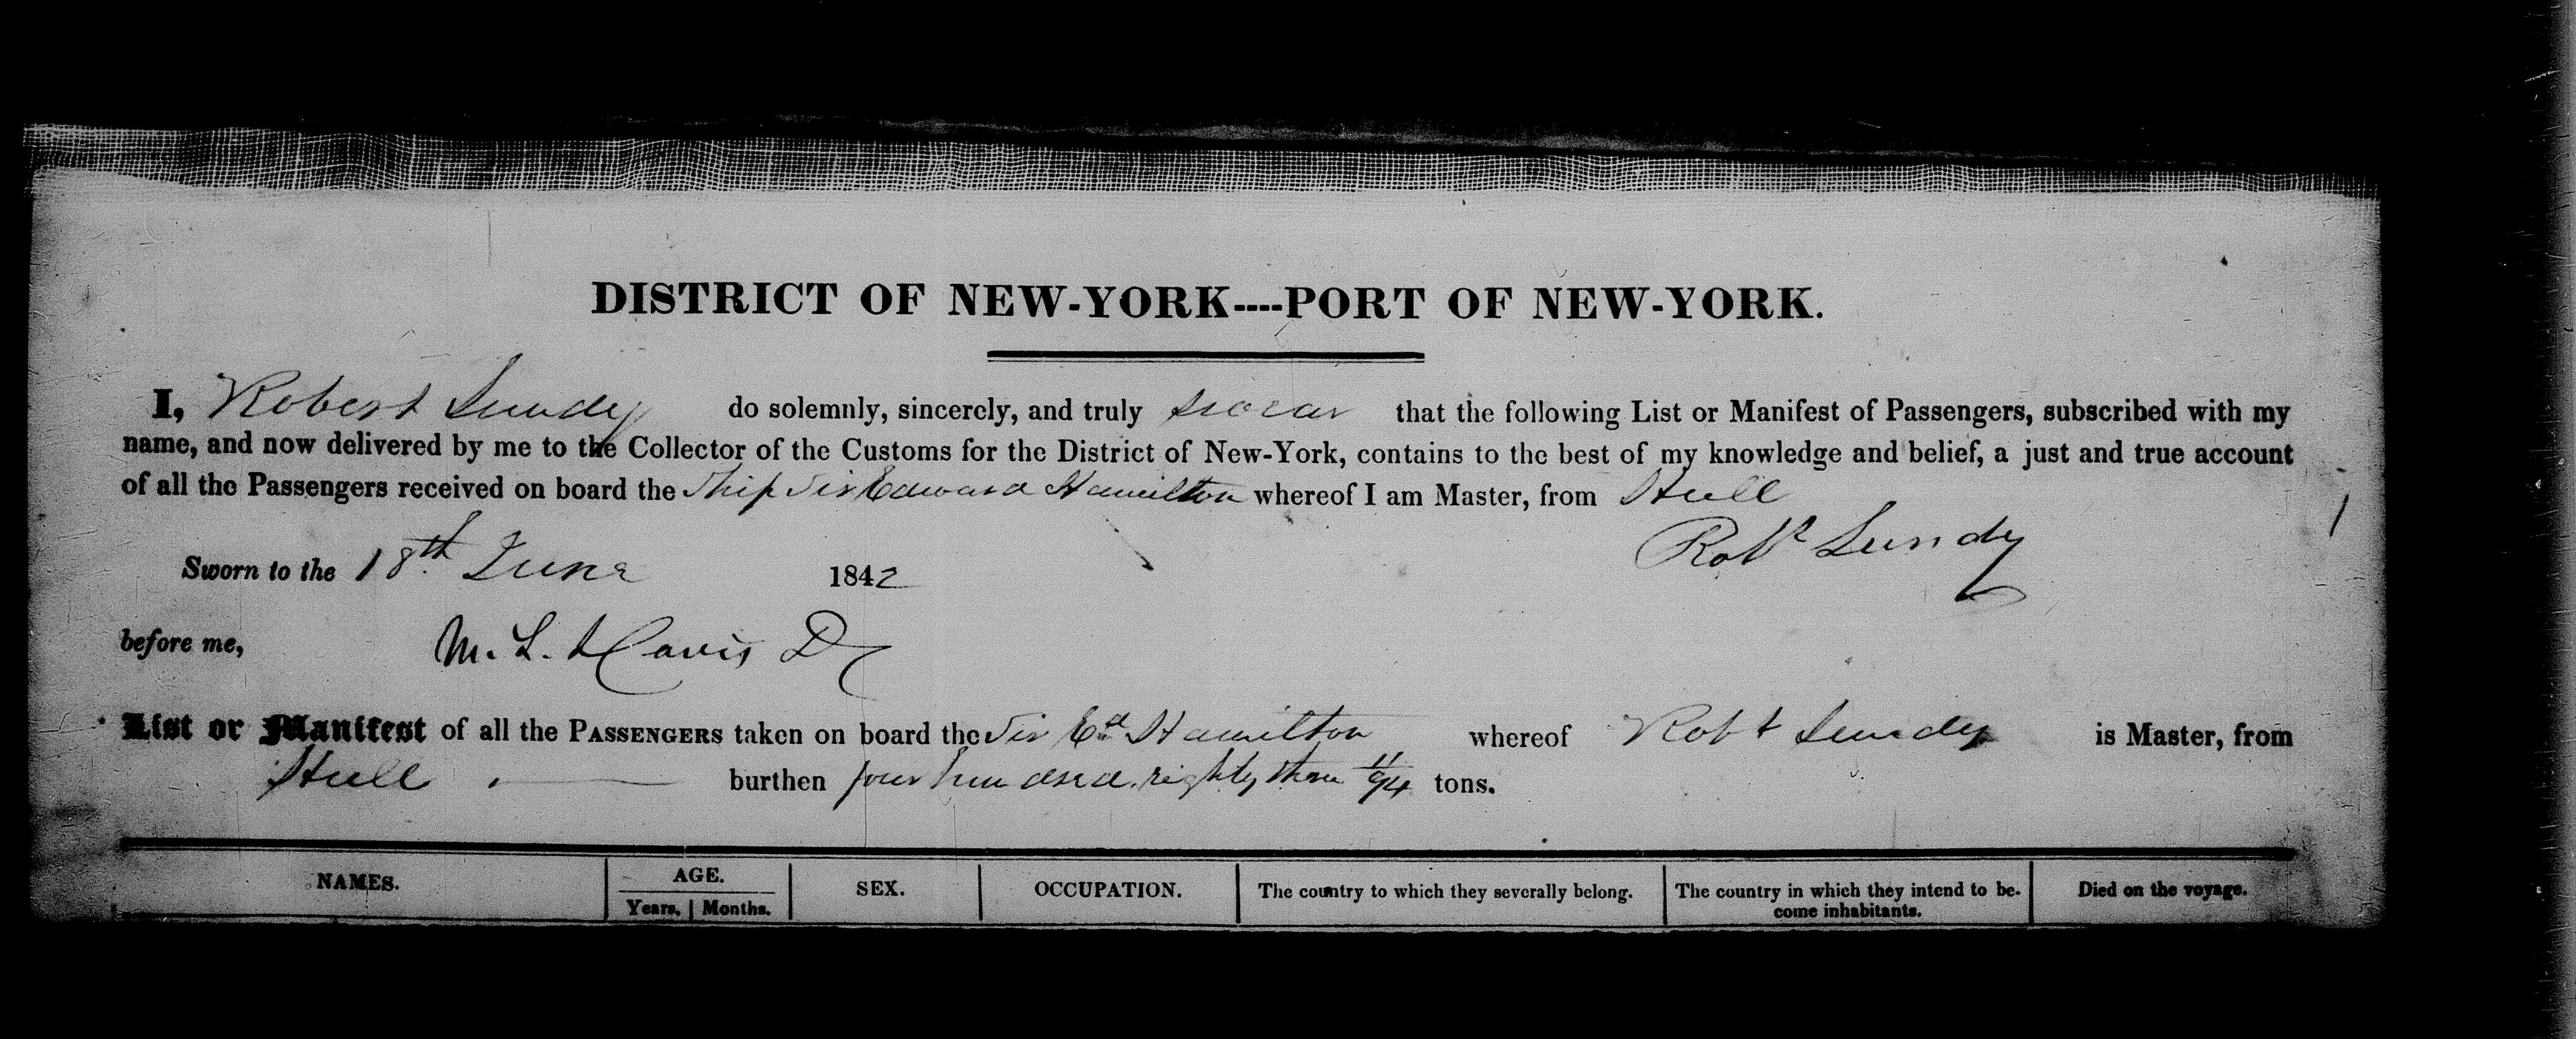 DISTRICT OF NEW-YORK----PORT OF NEW-YORK.
I, Robert Lundy do solemnly, sincerely, and truly swear that the following List or Manifest of Passengers, subscribed with my
name, and now delivered by me to the Collector of the Customs for the District of New-York, contains to the best of my knowledge and belief, a just and true account
of all the Passengers received on board the Ship Sir Edward Hamilton whereof I am Master, from Hull
Robt Lundy
Sworn to the 18th June 1842
before me, M. L. Davis
List or Manifest of all the PASSENGERS taken on board the Sir Ed Hamilton whereof Robt Lundy is Master, from
Hull burthen four hundred eighty three 11/94 tons.
NAMES. AGE. SEX. OCCUPATION. The country to which they severally belong. The country in which they intend to be- Died on the voyage.
Years. Months. come inhabitants.